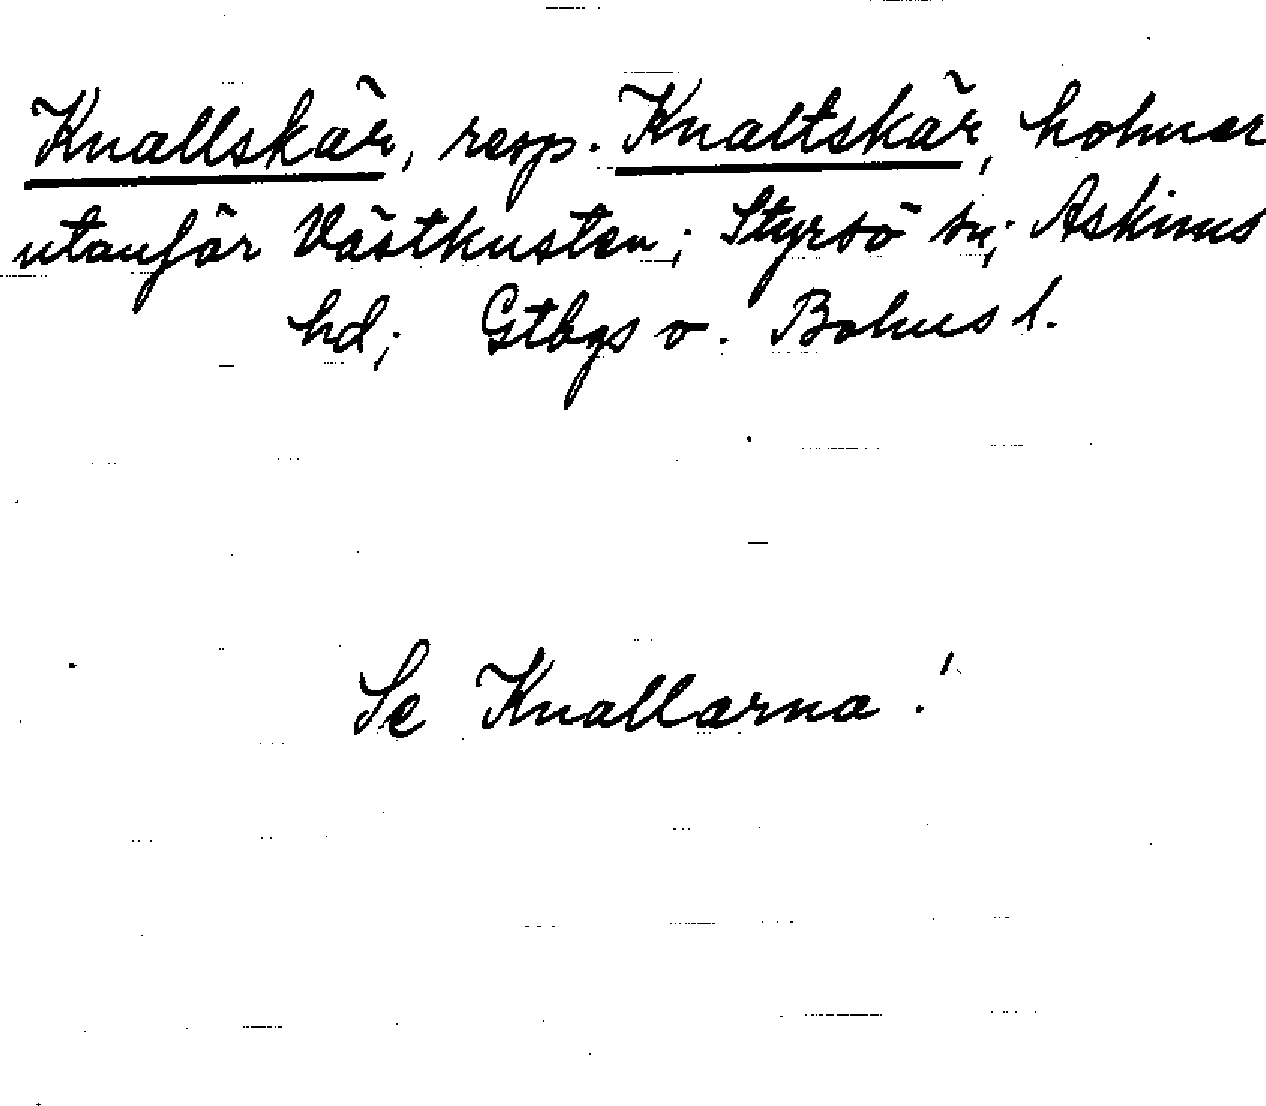 Knallskär, resp. Knaltskär, holmar
utanför Västkusten; Styrsö sn; Askims
hd; Gtbgs o. Bohus l.
Se Knallarna!